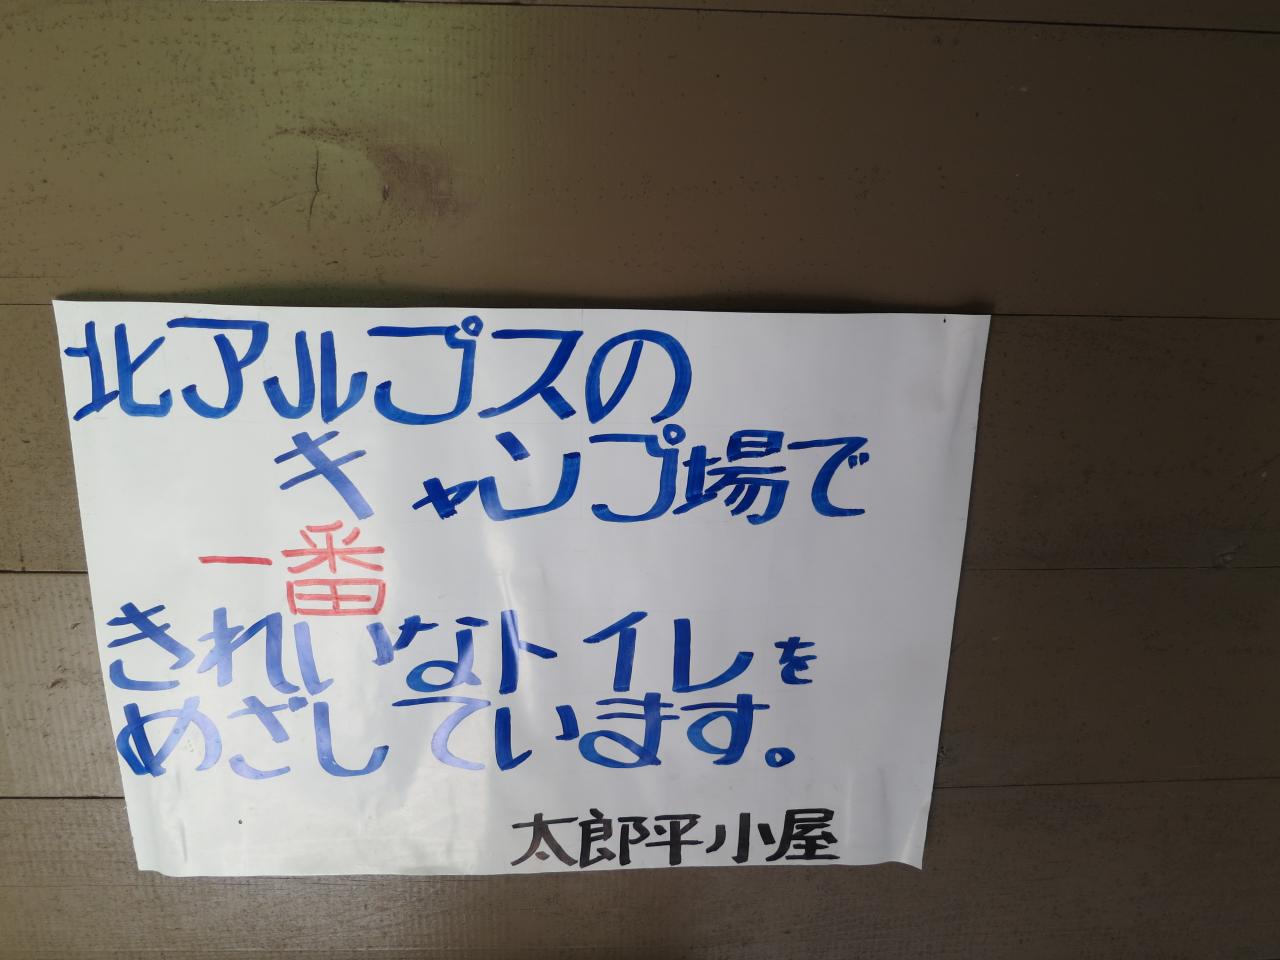 北アルプスの
キャンプ場で
一番
きれいなトイレを
めざしています。
太郎平小屋